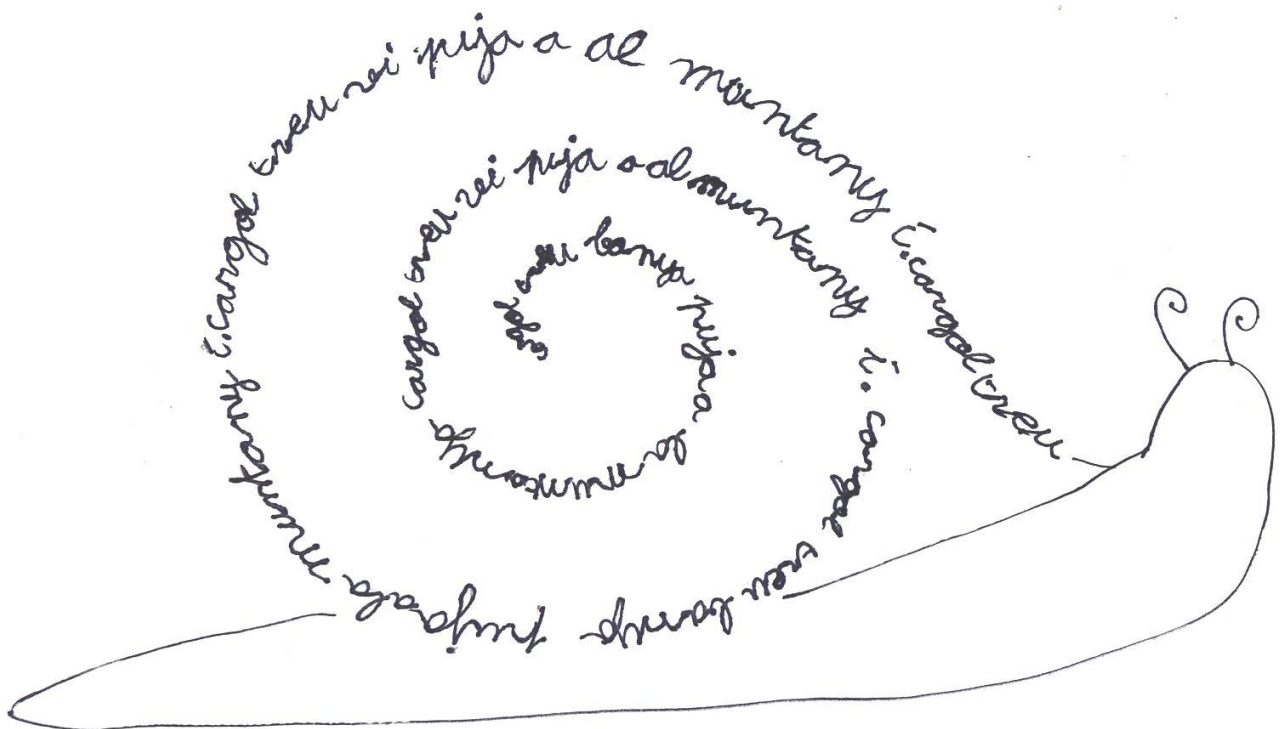 cargol treu banya puja a la muntanya cargol treu vi puja a al muntany i. cargol treu banya puja a la muntany i. cargol treu vi puja a al muntany i. cargol treu